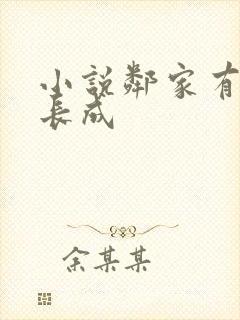 小說鄰家有
長成
余某某